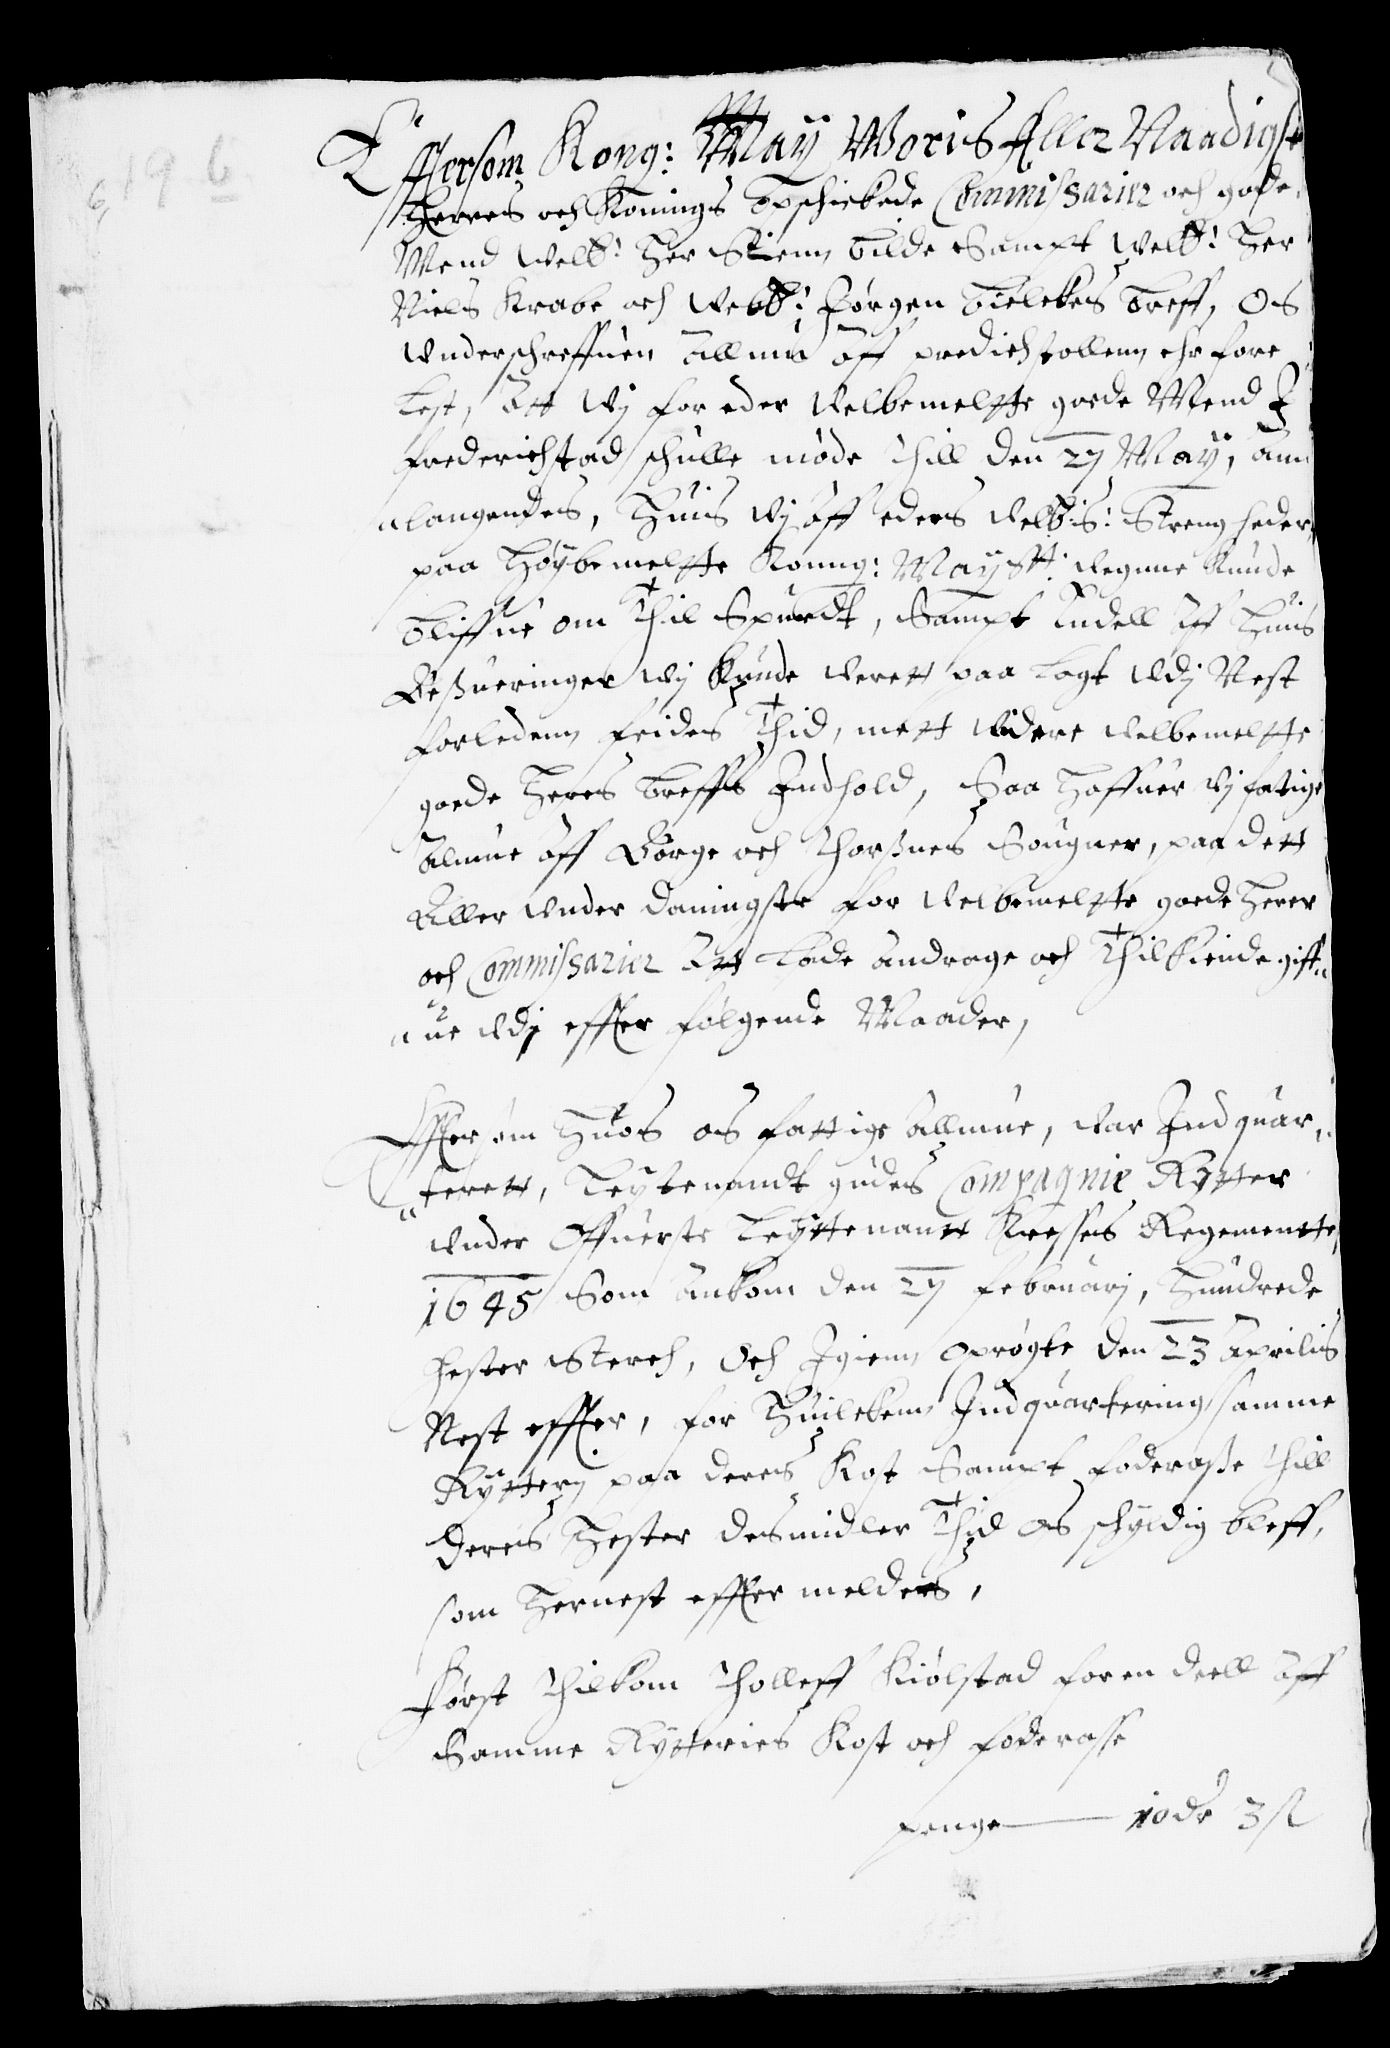 6, 19 6
Effтersom Kong: May Woris Aller Naadigste
Herres och Konings Vdschickede Commissarier och gode
Mend Welb: Her Steenn Bilde Sampt Welb: Her
Niels Krabe och Welb: Jørgen Bielckes breff, Os
Vnderschreffuen Allmu Aff predichstollenn ehr fore
lest, Att Wj for eder Welbemelte goede Mend I
Frederichstad schulle møde thill den 27 May, ann
langendes, Huis Wj Aff eders Welb:s: Strengheder,
paa Høybemelte Konng: Maystt: Wegnne Kunde
bliffue om Thil Spurdt, Sampt Endell Aff Huis
Besueringer Wj Kunde Werett paa lagt Vdj Nest
forledenn feides Thid, mett Widere Welbemelte
goede Heres breffs Indhold, Saa Haffuer Wj fatige
Almue Aff Borge och Thorsnes Sougner, paa dett
Aller Vnder daningste for Welbemelte goede Herer
och Commissarier Att lade Andrage och Thilkiende giff
ue Vdj effter følgende Maader,
Effter om Huos os fattige Allmue, Var Indquar
terett, Leutenandt gudes Compagnie Rytter
Vnder Offuerste Leuttenantt Kresses Regementte,
1645 Som Ankom den 27 Februarj, Hundrede
hester Sterch, Och Igienn oprøgte den 23 Aprilis
Nest effter, for Huilckenn Indquartering samme
Rytterj paa deres Kost Sampt foderasse thill
deres Hester Desmidler Thid Os schyldig bleff,
som Hernest effter melders,
Først Thilkom Tholleff Kiølstad for en deell Aff
Samme Rytteries Kost och foderasse
penge — 10 dr 3 ſl